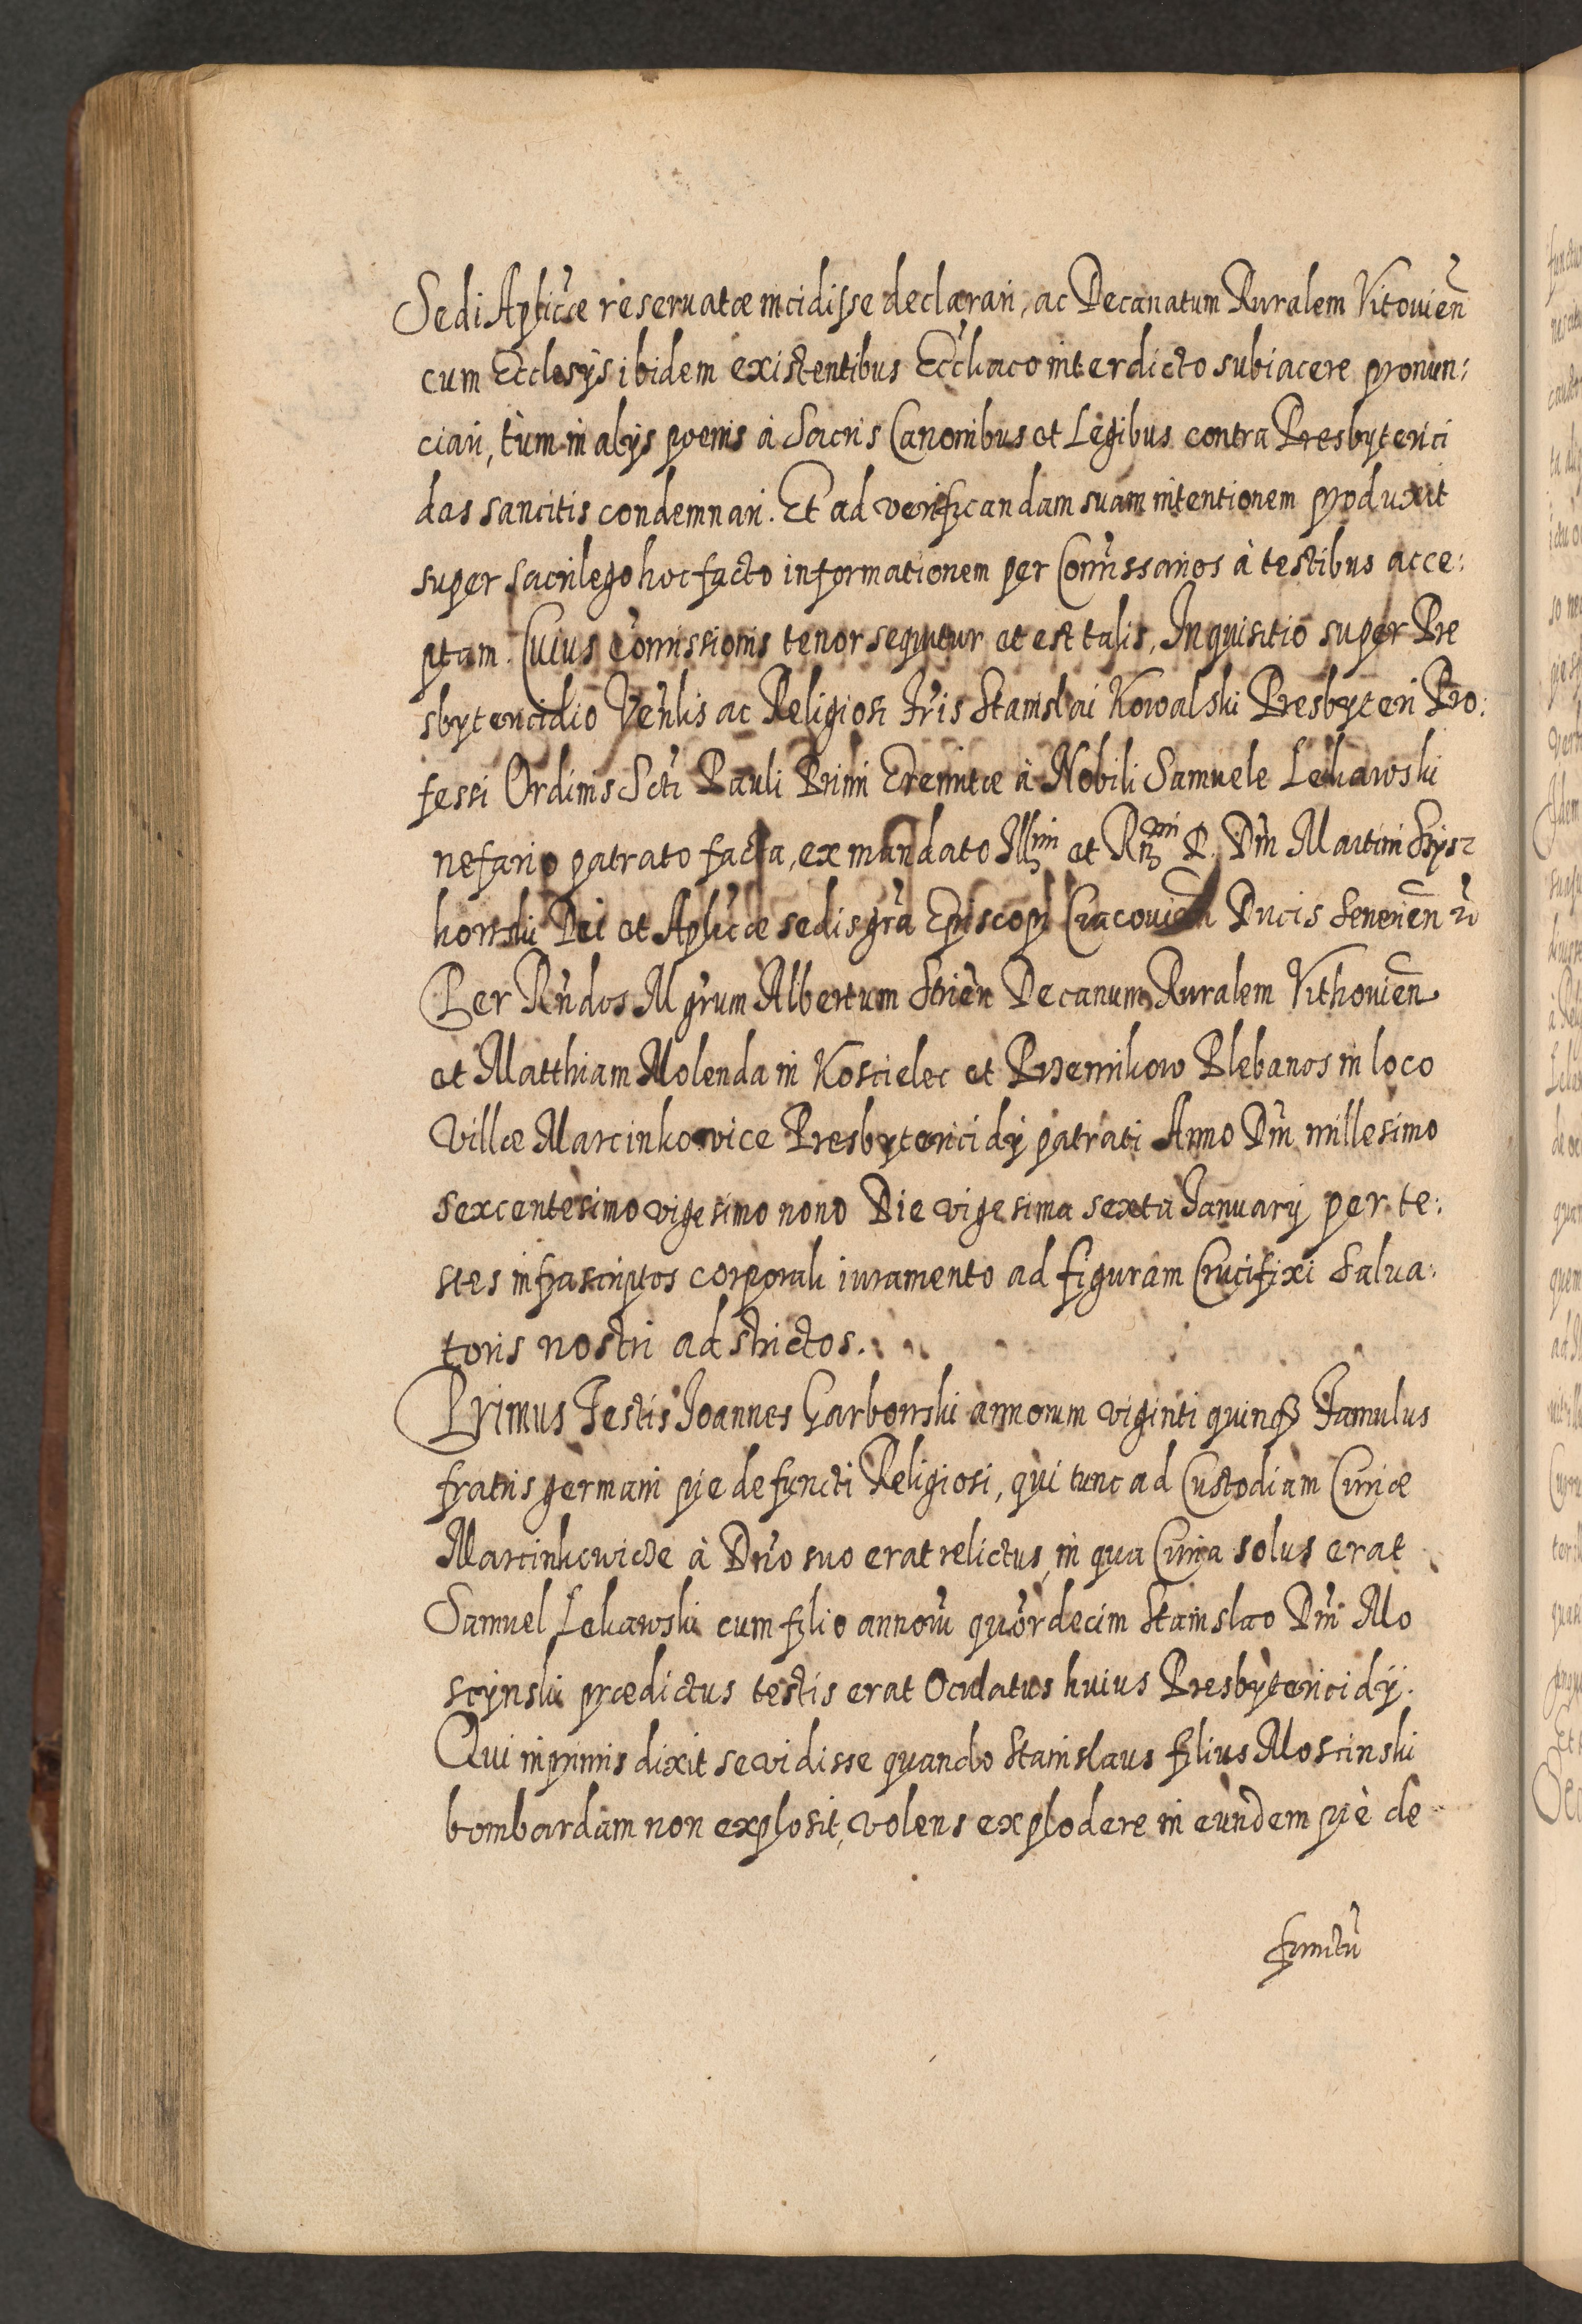 Sedi Aplicæ reseruatæ incidisse declarari, ac Decanatum Ruralem Vitouień
cum Ecclesÿs ibidem existentibus Eccliaco interdicto subiacere pronun:
ciari, tùm in alÿs poenis à Sacris Canonibus et Legibus contra Presbyterici
das sancitis condemnari. Et ad verificandam suam intentionem produxit
super sacrilego hoc facto informationem per Comissarios à testibus acce:
ptam. Cuius Comissionis tenor sequitur et est talis, Inquisitio super Pre
sbytericidio Venlis ac Religiosi Fris Stanislai Kowalski Presbyteri Pro:
fessi Ordinis Scti Pauli Primi Eremitæ à Nobili Samuele Lekawski
nefario patrato facta, ex mandato Illmi et Rndmi D. Dni Martini Szÿsz
kowski Dei et Aplicæ sedis gra Episcopi Cracouień Ducis Seuerień
Per Rndos Mgrum Albertum Strièn Decanum Ruralem Vithouień
et Matthiam Molenda in Koscielec et Przemikow Plebanos in loco
Villæ Marcinkowice Presbytericidÿ patrati Anno Dni millesimo
sexcentesimo vigesimo nono Die vigesima sexta Januarÿ per te:
stes infrascriptos corporali iuramento ad figuram Crucifixi Salua:
toris nostri adstrictos.
Primus Testis Joannes Garbowski annorum viginti quinqȝ Famulus
fratris germani pie defuncti Religiosi, qui tunc ad Custodiam Curiæ
Marcinkowicze à Dno suo erat relictus, in qua Curia solus erat
Samuel Lekawski cum filio annorū quordecim Stanislao Dni Mo
scÿnski prædictus testis erat Oculatus huius Presbytericidÿ.
Qui inprimis dixit se vidisse quando Stanislaus filius Moscinski
bombardam non explosit, volens explodere in eundem piè de
functū